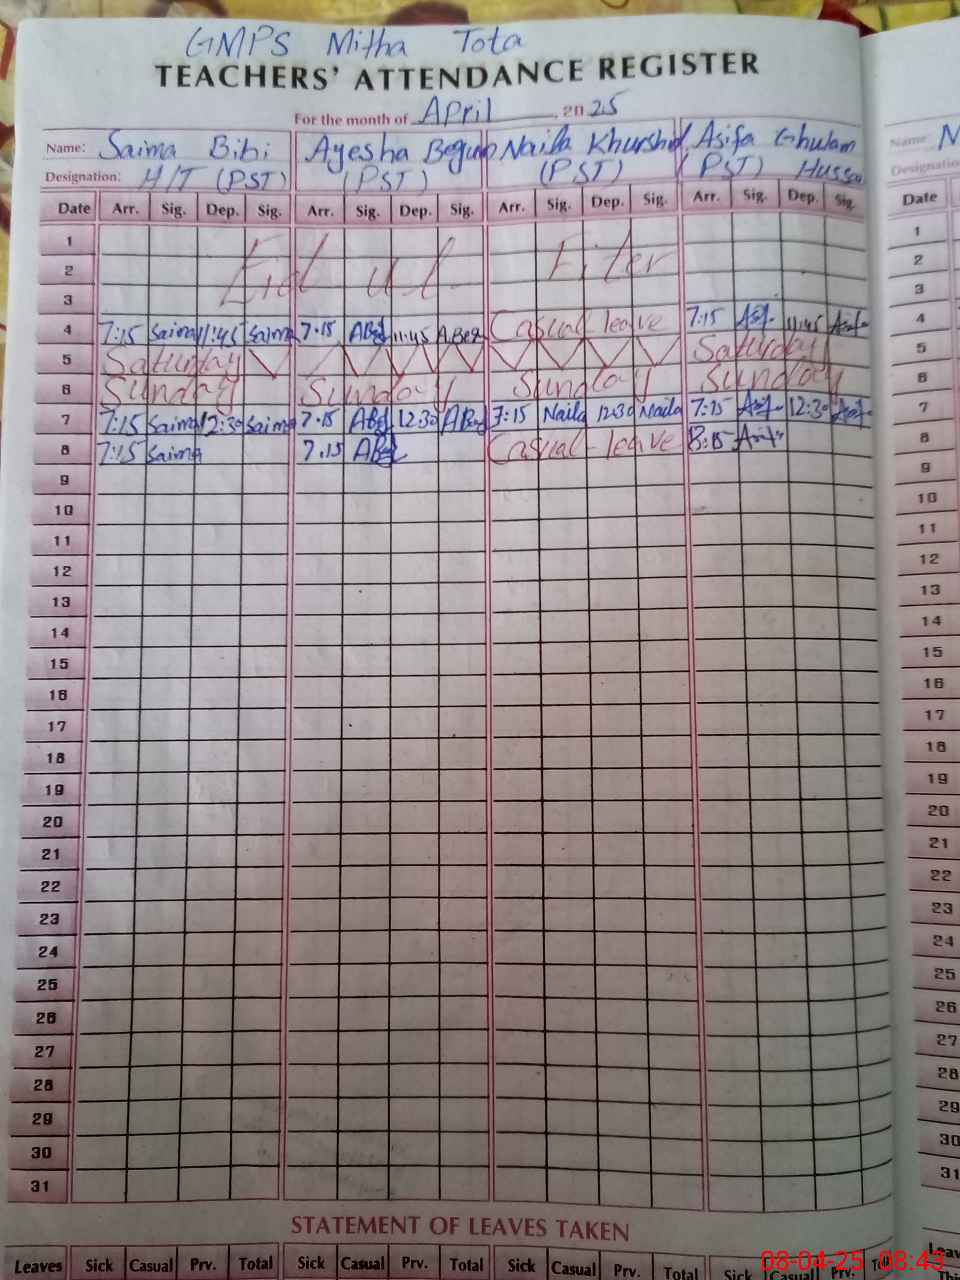 GMPS Mitha Tota
TEACHERS' ATTENDANCE REGISTER
For the month of April, 2025
Name: Saima Bibi Ayesha Begum Naila Khurshid Asifa Ghulam
Designation: H/T (PST) (PST) (PST) (PST) Hussain
Date Arr. Sig. Dep. Sig. Arr. Sig. Dep. Sig. Arr. Sig. Dep. Sig. Arr. Sig. Dep. Sig.
1
2 Eid ul Fiter
3
4 7:15 Saima 11:45 Saima 7.15 ABeg 11:45 A.Beg Casual leave 7:15 Asif 11:45 Asif
5 Saturday Saturday
6 Sunday Sunday Sunday Sunday
7 7:15 Saima 12:30 Saima 7.15 ABeg 12.30 ABeg 7:15 Naila 12:30 Naila 7:15 Asif 12:30 Asif
8 7:15 Saima 7.15 ABeg Casual leave 8:15 Asif
9
10
11
12
13
14
15
16
17
18
19
20
21
22
23
24
25
26
27
28
29
30
31
STATEMENT OF LEAVES TAKEN
Leaves Sick Casual Prv. Total Sick Casual Prv. Total Sick Casual Prv. Total Sick Casual Prv.
Name: N
Designation
Date
1
2
3
4
5
6
7
8
9
10
11
12
13
14
15
16
17
18
19
20
21
22
23
24
25
26
27
28
29
30
31
08-04-25 08:43